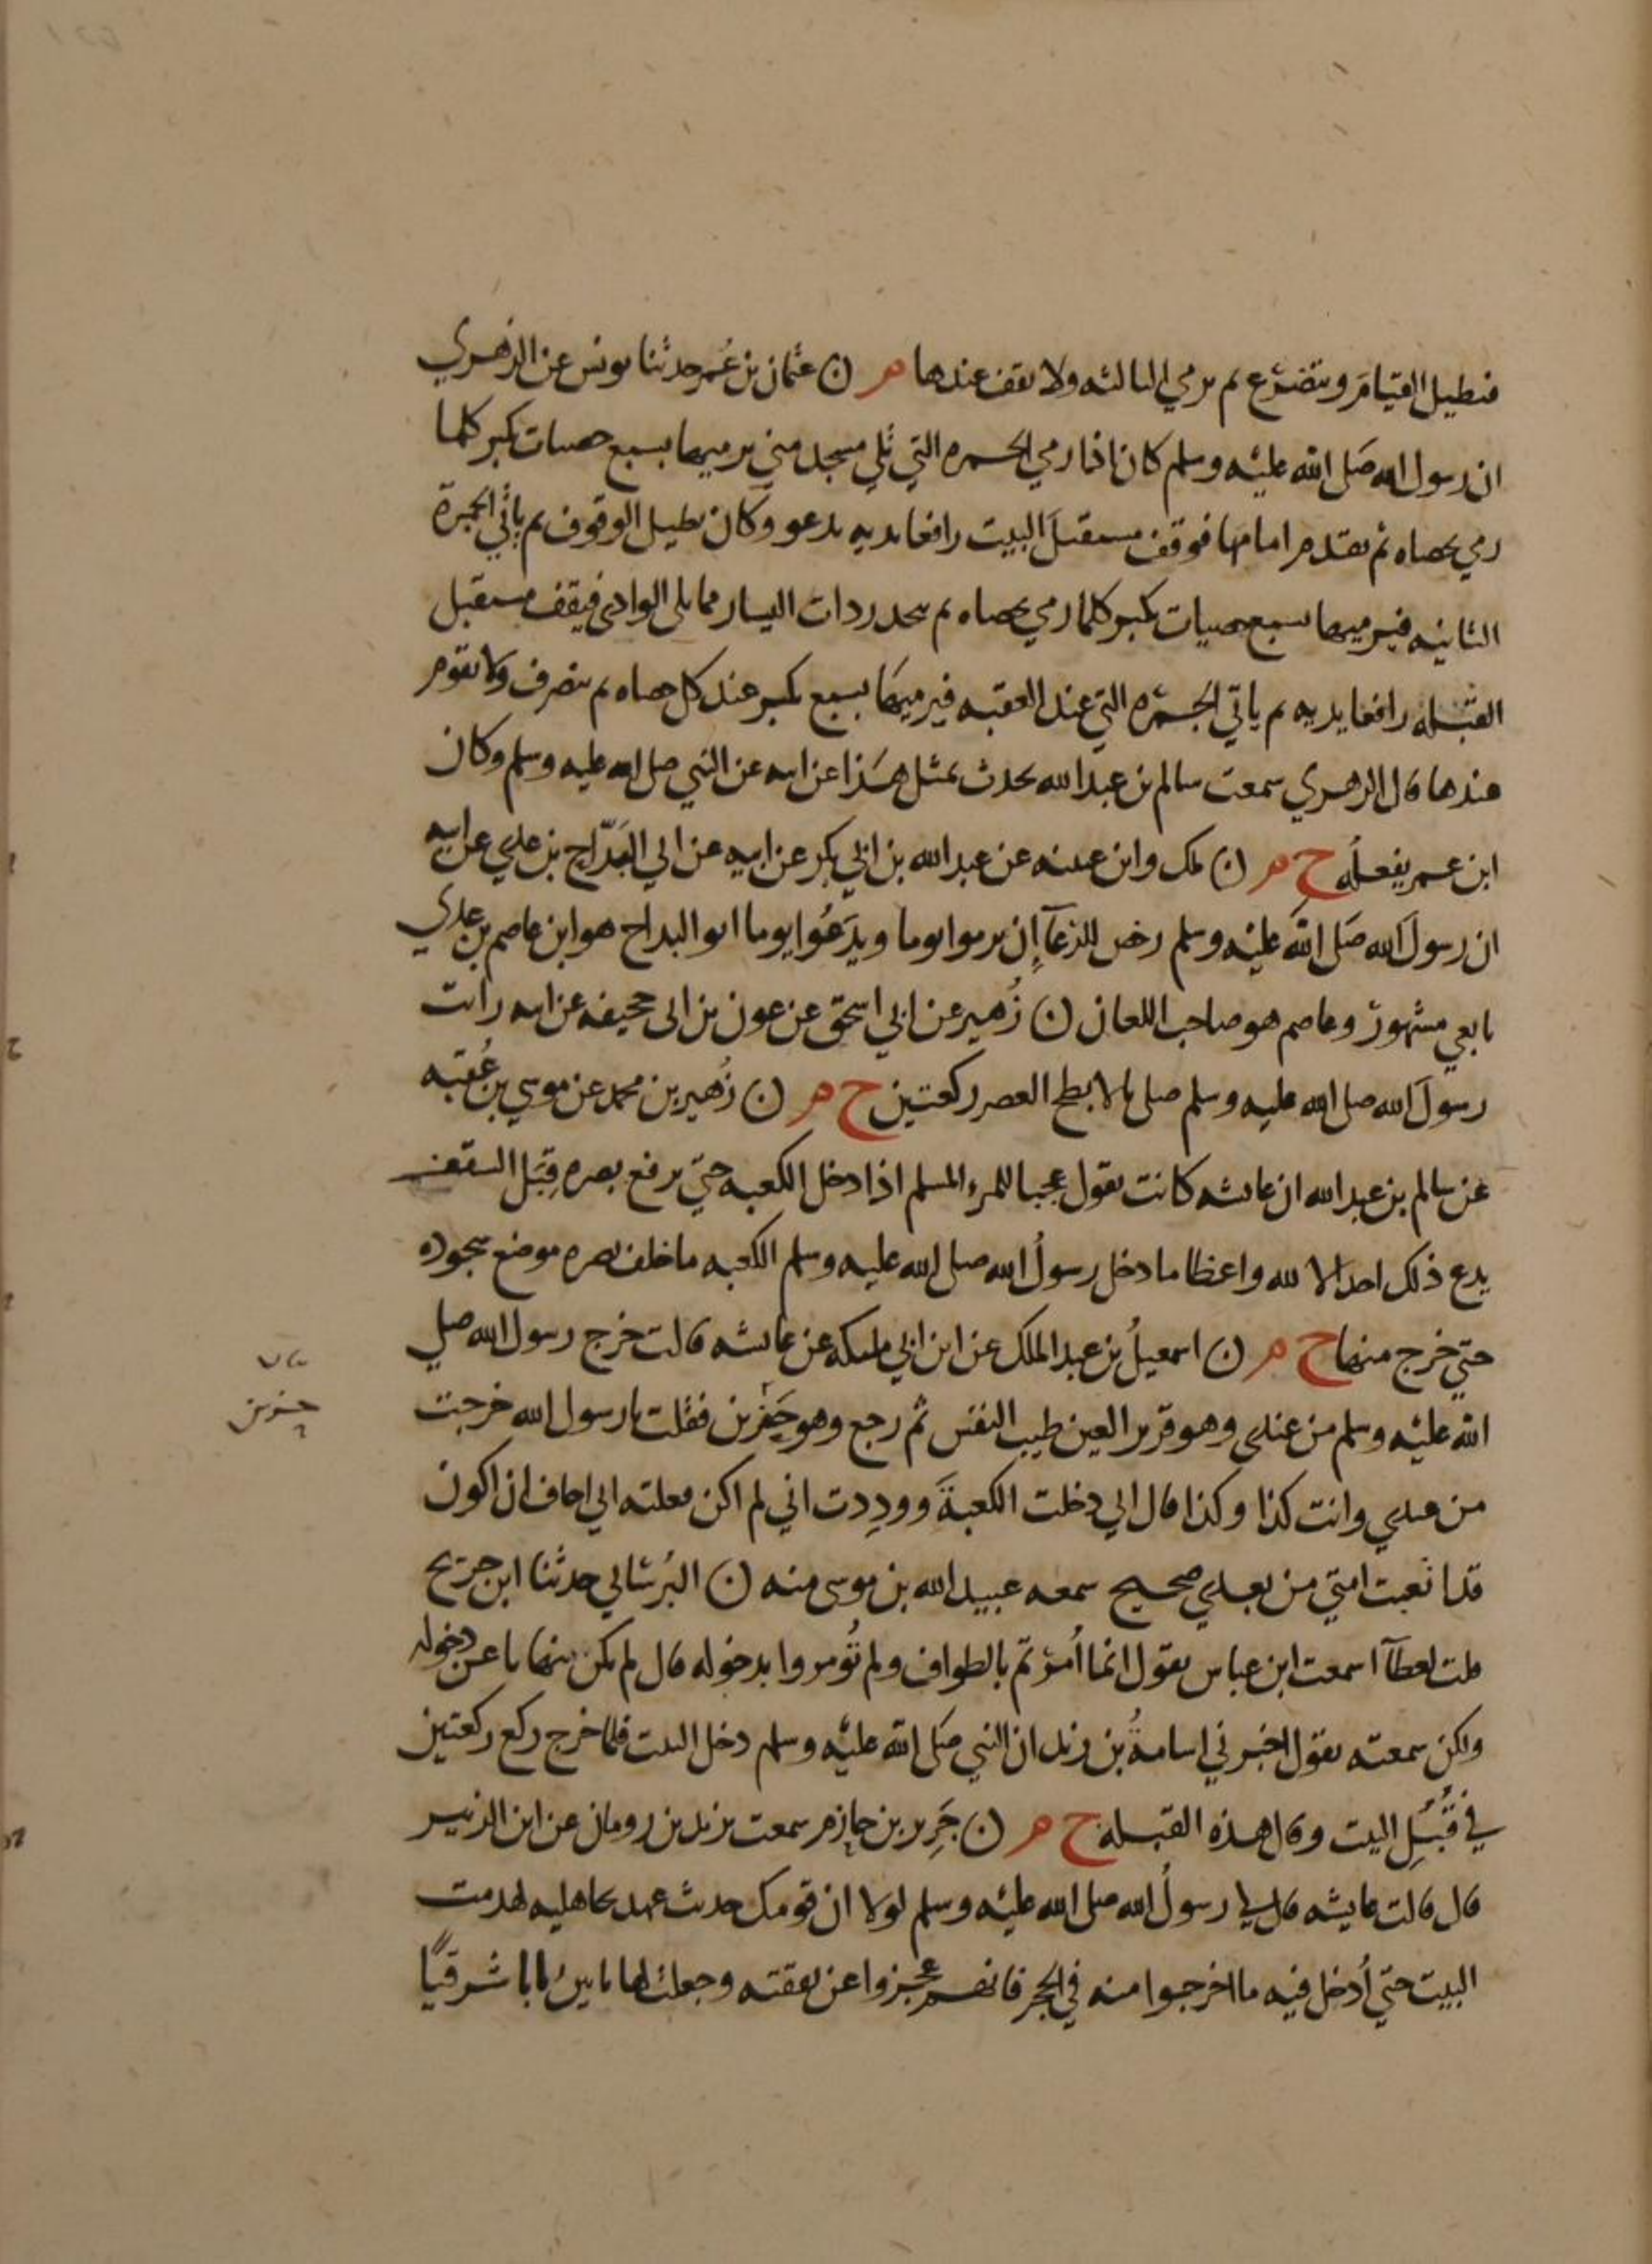 فيطيل القيام ويتضرع ثم يرمي الثالثه ولا يقف عندها هـ ن عثمان بن عُمر حدثنا يونس عن الزهري
ان رسول الله صَلى الله عليْه وسلم كان اذا رمي الجمره التي تلي مسجد منى يرميها بسبع حصيات يكبر كلما
رمي بحصاه ثم تقدم امامها فوقف مستقبلَ البيت رافعا يديه يدعو وكان يطيل الوقوف ثم ياتي الجمرة
الثانيه فيرميها بسبع حصيات يكبر كلما رمي بحصاه ثم ينحدر ذات اليسار مما يلي الوادي فيقف مستقبل
القبله رافعا يديه ثم ياتي الجمره التي عند العقبه فيرميها بسبع يكبر عند كل حصاه ثم ينصرف ولا يقوم
عندها قال الزهري سمعت سالم بن عبد الله يحدث بمثل هَذا عن ابيه عن النبي صلى الله عليه وسلم وكان
ابن عمر يفعلُه ح هـ ن ملك وابن عيينه عن عبد الله بن ابي بكر عن ابيه عن ابي البَدّاح بن عدي عن ابيه
ان رسولَ الله صَلى الله عليْه وسلم رخص للرعآ ان يرموا يوما ويدَعُوا يوما ابو البداح هو ابن عاصم بن عدي
تابعي مشهورٌ وعاصم هو صاحب اللعان ن زُهير عن ابي اسحق عن عون بن ابي جحيفه عن ابيه رايت
رسولَ الله صلى الله عليه وسلم صلى بالابطح العصر ركعتين ح هـ ن زُهير بن محمد عن موسي بن عُقبه
عن سالم بن عبد الله ان عائشه كانت تقول عجبا للمرء المسلم اذا دخل الكعبه حتي يرفع بصره قِبَل السقف
يدع ذلك اجلالا لله واعظاما دخل رسولُ الله صلى الله عليه وسلم الكعبه ما خلف بصره موضع سجوده
حتي خرج منها ح هـ ن اسمعيلُ بن عبد الملك عن ابن ابي مليكه عن عائشه قالت خرج رسول الله صلي
الله عليْه وسلم من عندي وهو قرير العين طيب النفس ثم رجع وهو حَزين فقلت يا رسول الله خرجت
من عندي وانت كذا وكذا قال اني دخلت الكعبةَ وودِدت اني لم اكن فعلته اني اخاف ان اكون
قد اتعبت امتي من بعدي صحيح سمعه عبيد الله بن موسى منه ن البُرساني حدثنا ابن جريج
قلت لعطآ اسمعت ابن عباس يقول انما أُمرتم بالطواف ولم تُومروا بدخوله قال لم يكن ينهانا عن دخوله
ولكن سمعته يقول اخبرني اسامةُ بن زيد ان النبي صَلى الله عليْه وسلم دخل البيت فلما خرج ركع ركعتين
في قُبُلِ البيت وقال هذه القبلة ح هـ ن جَرِير بن حازم سمعت يزيد بن رومان عن ابن الزبير
قال قالت عايشه قال لي رسولُ الله صلى الله عليْه وسلم لولا ان قومك حديث عهد بجاهليه لهدمت
البيت حتي أُدخل فيه ما اخرجوا منه في الحجر فانهم عجزوا عن نفقته وجعلت لها بابين بابا شرقيًا
حزين